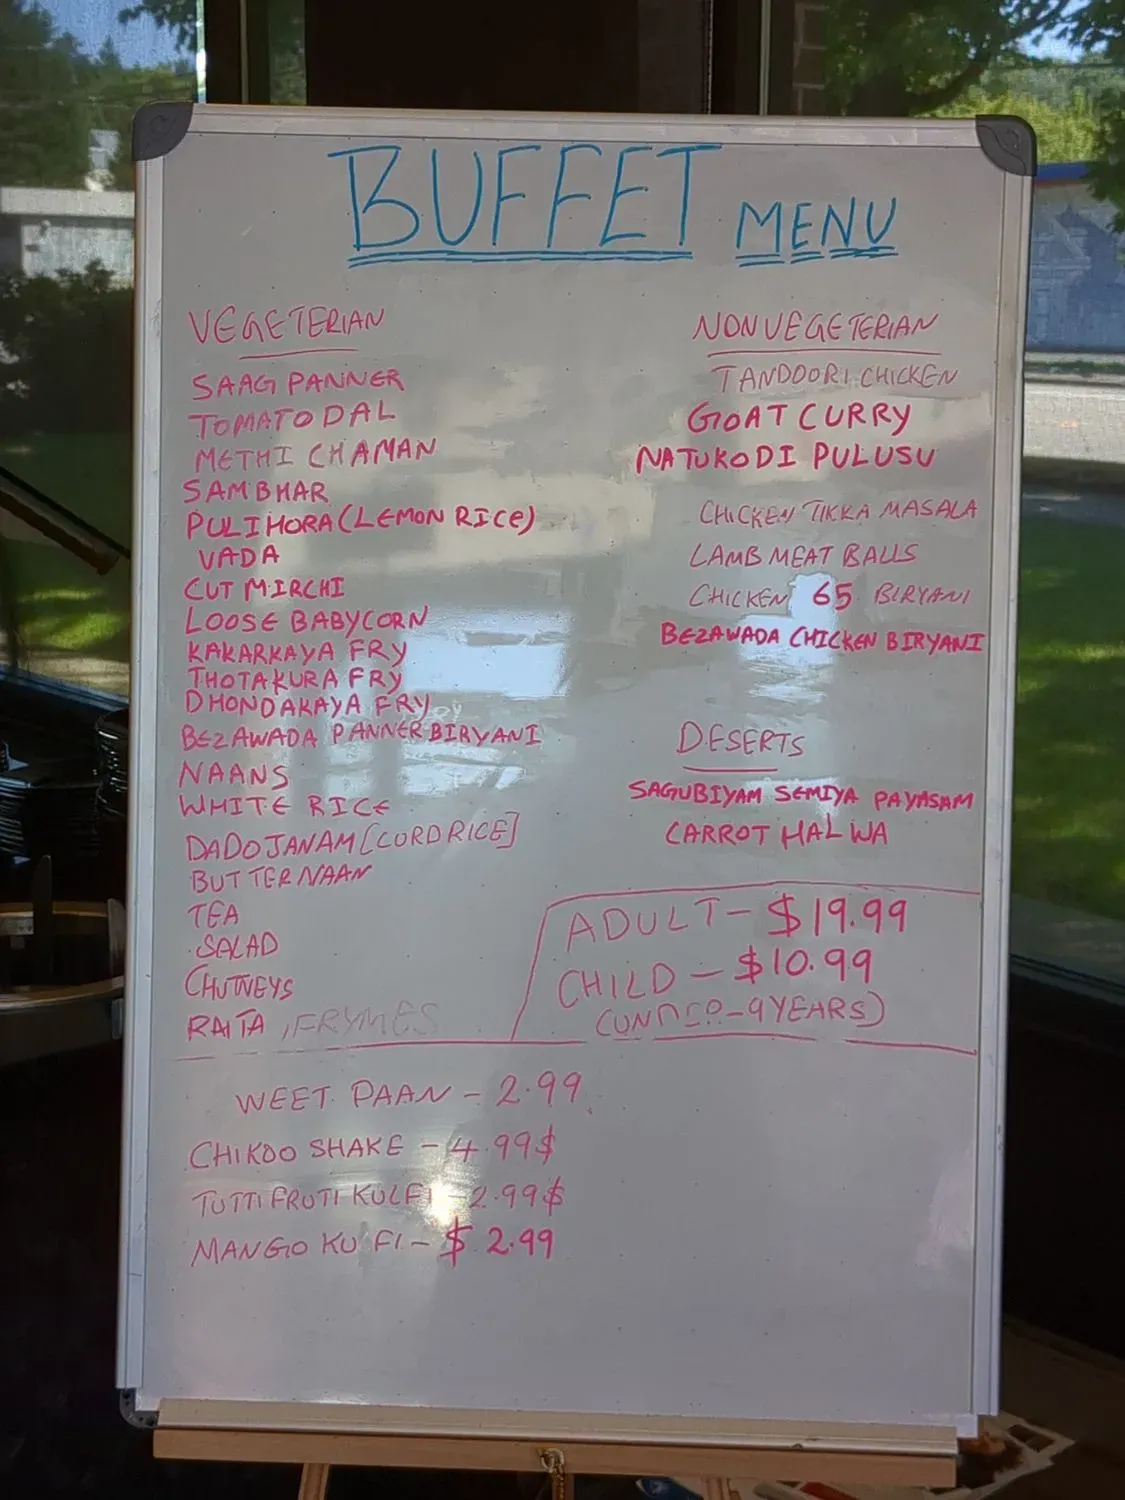 BUFFET MENU
VEGETERIAN
SAAG PANNER
TOMATO DAL
METHI CHAMAN
SAMBHAR
PULIHORA (LEMON RICE)
VADA
CUT MIRCHI
LOOSE BABYCORN
KAKARKAYA FRY
THOTAKURA FRY
DHONDAKAYA FRY
BEZAWADA PANNER BIRYANI
NAANS
WHITE RICE
DADOJANAM [CURD RICE]
BUTTER NAAN
TEA
SALAD
CHUTNEYS
RAITA, FRYMES
NONVEGETERIAN
TANDOORI CHICKEN
GOAT CURRY
NATUKODI PULUSU
CHICKEN TIKKA MASALA
LAMB MEAT BALLS
CHICKEN 65 BIRYANI
BEZAWADA CHICKEN BIRYANI
DESERTS
SAGUBIYAM SEMIYA PAYASAM
CARROT HALWA
ADULT - $19.99
CHILD - $10.99
- 9 YEARS)
WEET PAAN - 2.99
CHIKOO SHAKE - 4.99$
TUTTI FRUTI KULFI - 2.99$
MANGO KU FI - $ 2.99